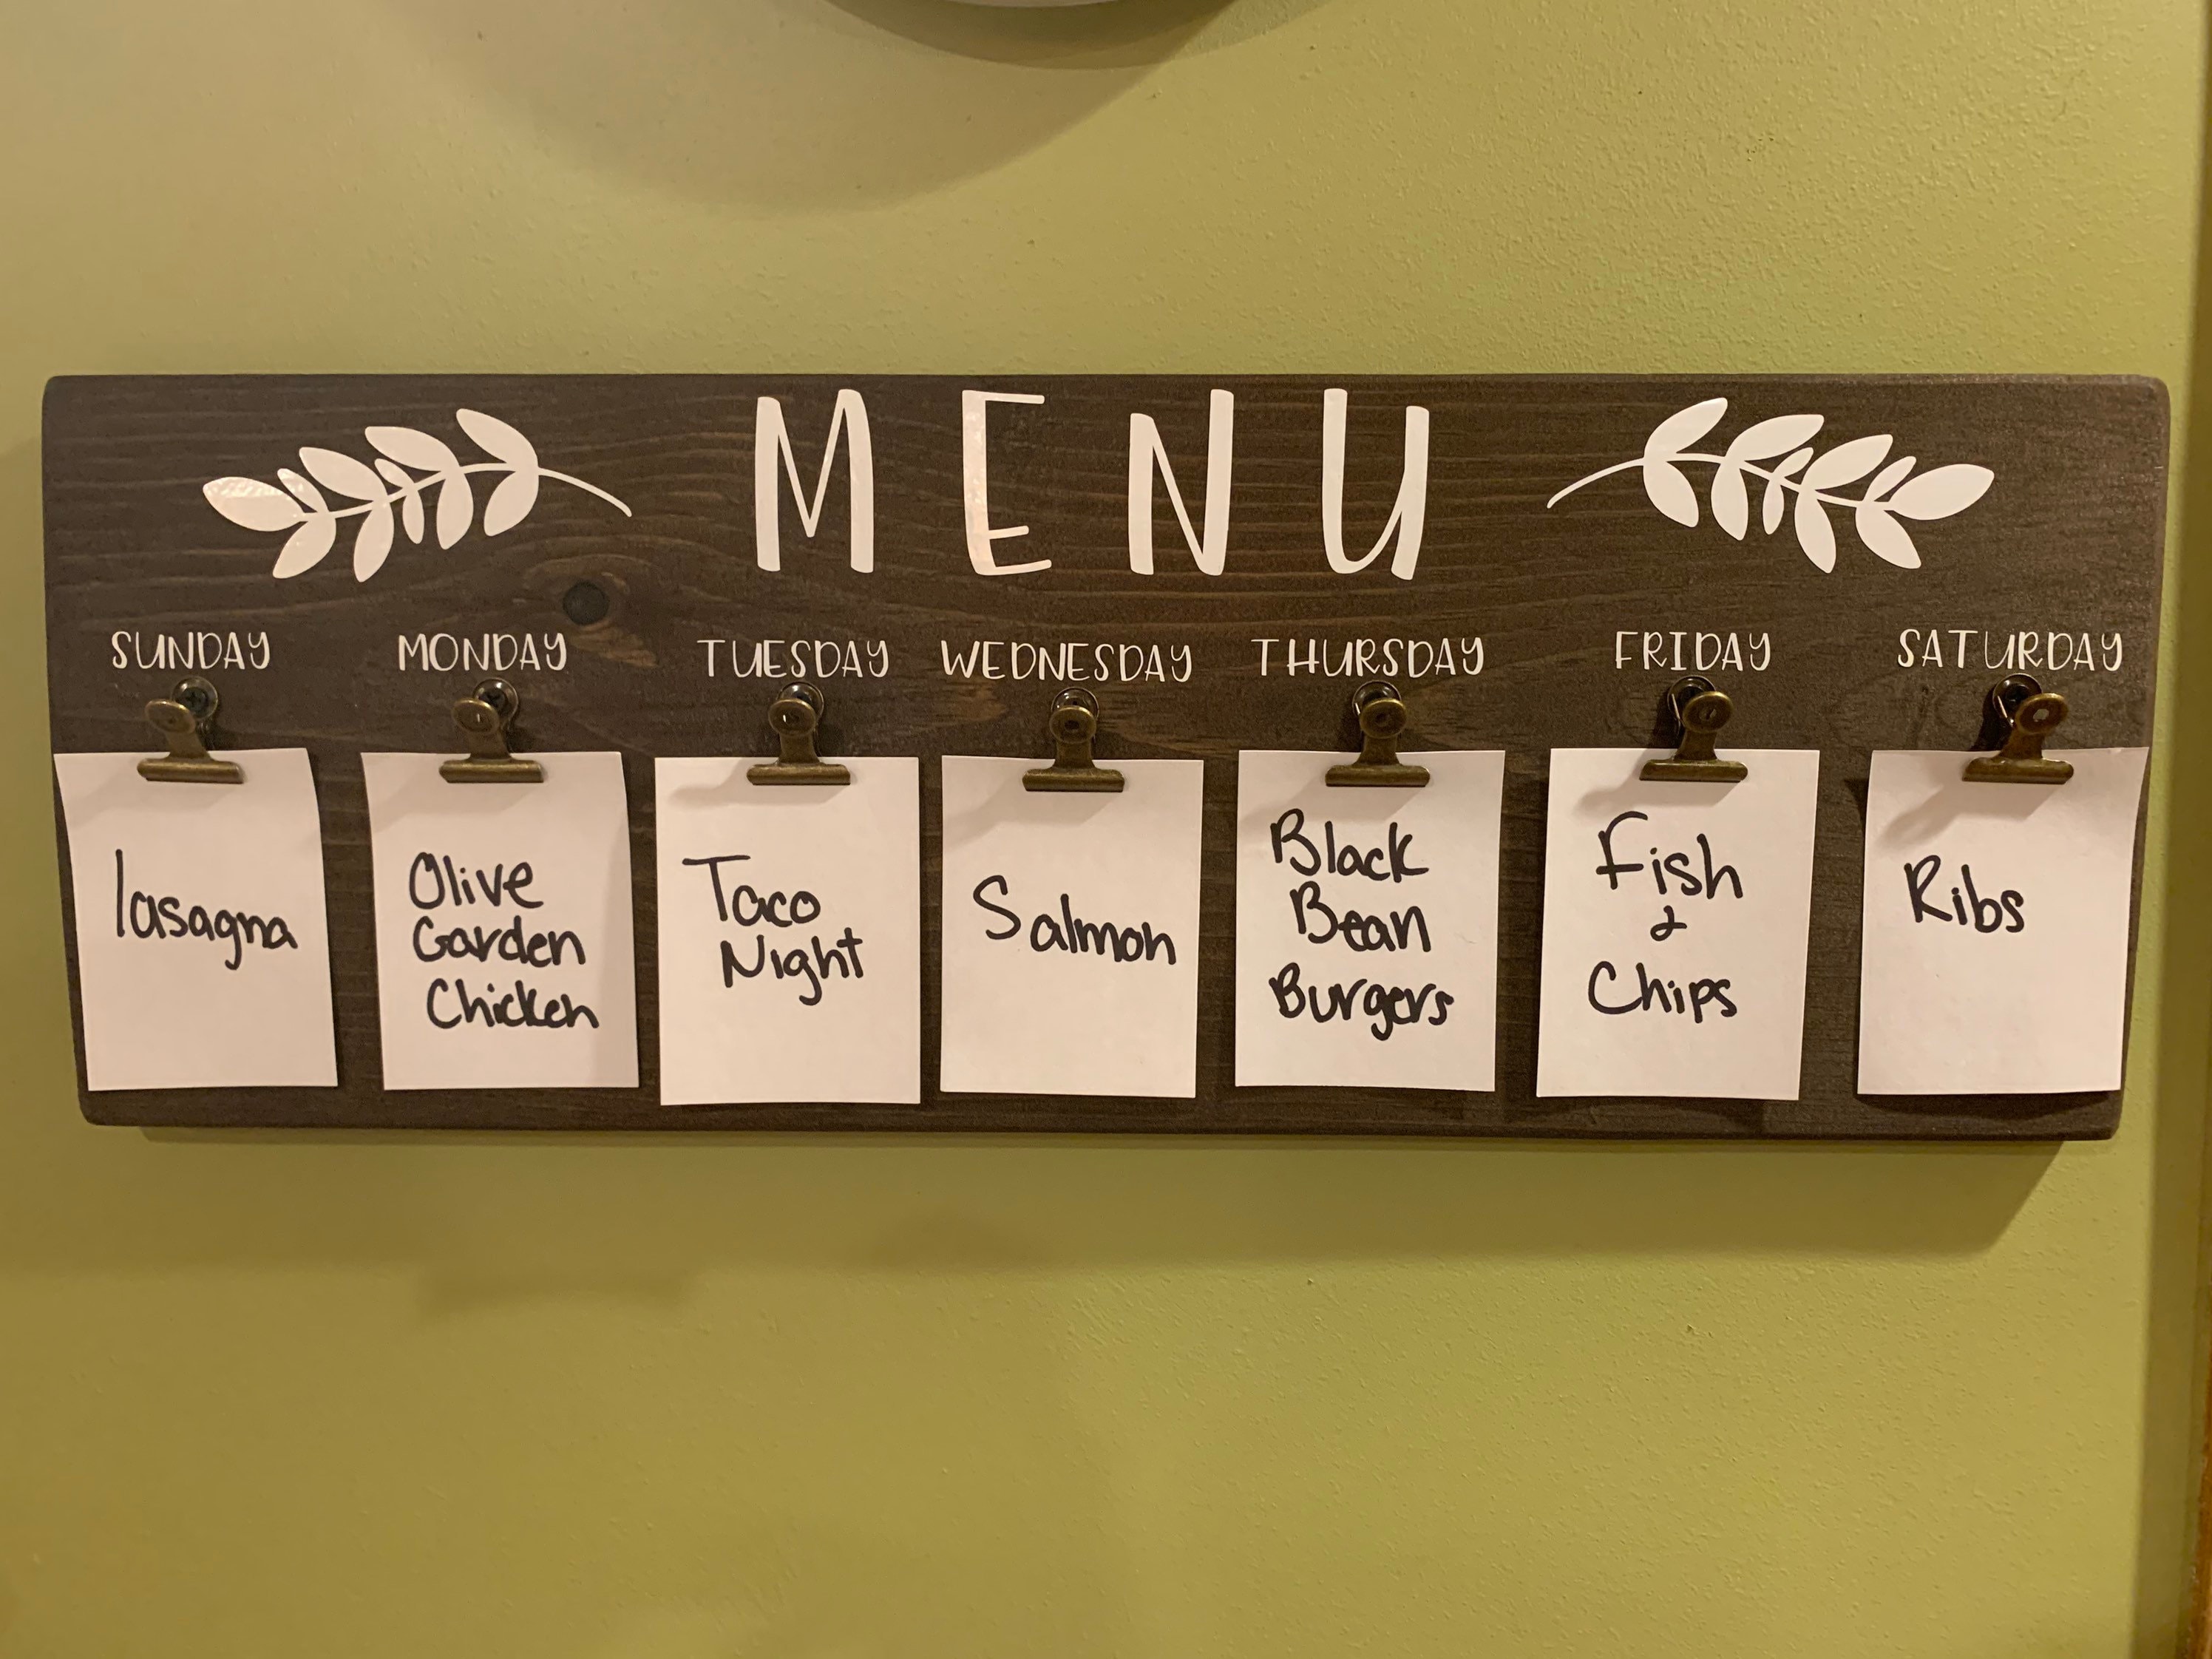 MENU
SUNDAY MONDAY TUESDAY WEDNESDAY THURSDAY FRIDAY SATURDAY
lasagna
Olive
Garden
Chicken
Taco
Night
Salmon
Black
Bean
Burgers
Fish
&
Chips
Ribs